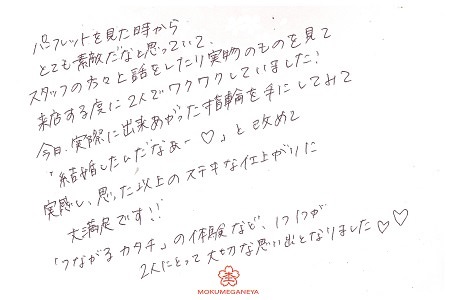 パンフレットを見た時から
とても素敵だなと思っていて、
スタッフの方々と話をしたり実物のものを見て
来店する度に2人でワクワクしていました!
今日、実際に出来あがった指輪を手にしてみて
「結婚したんだなぁー♡」と改めて
実感し、思った以上のステキな仕上がりに
大満足です!!
「つながるカタチ」の体験など、1つ1つが
2人にとって大切な思い出となりました♡♡
MOKUMEGANEYA